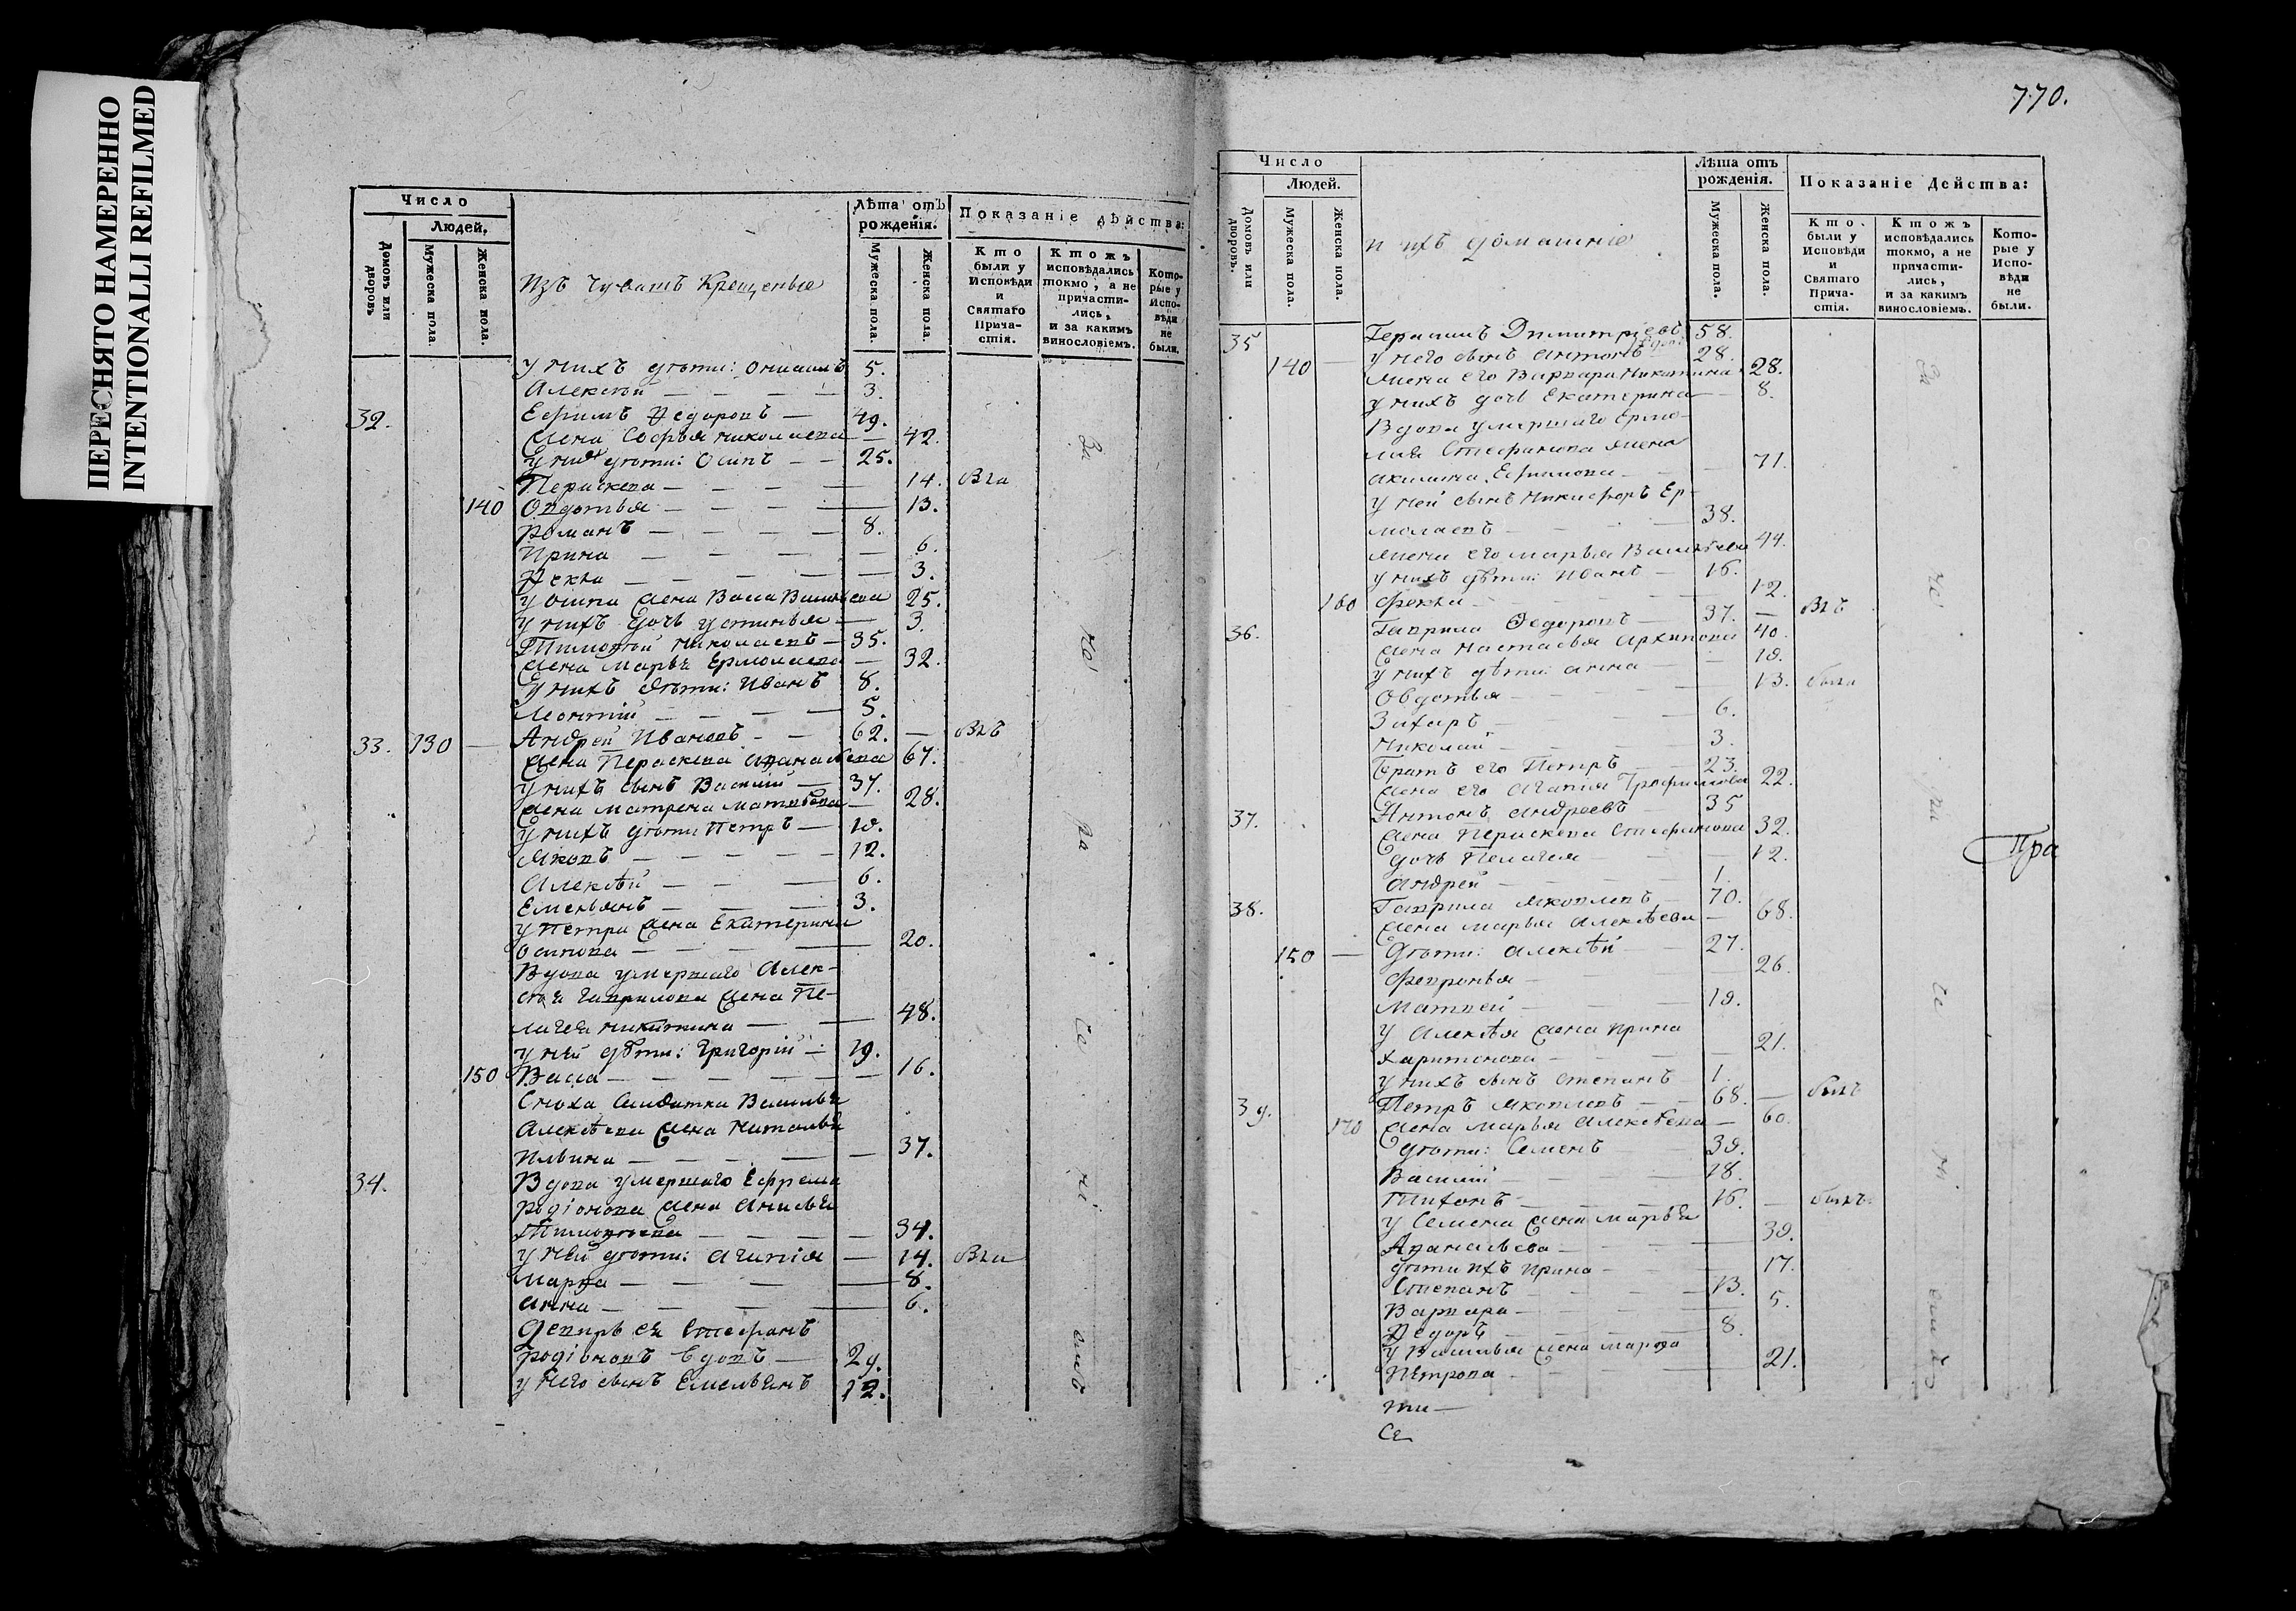 ПЕРЕСНЯТО НАМЕРЕННО
INTENTIONALLI REFILMED
Число
Людей.
Домовъ или дворовъ
Мужеска пола.
Женска пола.
Изъ Чувашъ Крещеные
Лѣта отъ рожденія.
Мужеска пола.
Женска пола.
Показаніе дѣйства:
Кто были у Исповѣди и Святаго Прича-стія.
Ктожъ исповѣдались токмо, а не причасти-лись, и за какимъ винословіемъ.
Кото-рые у Испо-вѣди не были.
У нихъ дѣти: Онисимъ 5.
Алексѣй — — — 3.
32. Ефимъ Ѳедоровъ — 49.
Жена Софья Николаева — 42.
У них дѣти: Осипъ — — 25.
Параскева — — — — 14. Была
140 Овдотья — — — — 13.
Романъ — — — — 8.
Ирина — — — — 6.
Ѳекла — — — — 3.
У Осипа жена Васса Васильева 25.
У нихъ дочь Устинья — 3.
Тимоѳей Николаевъ — 35.
Жена Марья Ермолаева — 32.
У нихъ дѣти: Иванъ 8.
Леонтій — — — 5.
33. 130 — Андрей Ивановъ — — 62. — Былъ
Жена Параскева Аѳанасьева 67.
У нихъ сынъ Василій — 37.
Жена Матрена Матвѣева — 28.
У нихъ дѣти Петръ — 18.
Яковъ — — — — 12.
Алексѣй — — — 6.
Емельянъ — — — 3.
У Петра жена Екатерина
Осипова — — — — 20.
Вдова умершаго Алек-
сѣя Гаврилова жена Пе-
лагея Никитина — — 48.
У ней дѣти: Григорій — 19.
150 Васса — — — — 16.
Сноха Солдатка Василья
Алексѣева жена Наталья
Ильина — — — — 37.
34. Вдова умершаго Ефрема
Родіонова жена Анисья
Тимоѳеева — — — — 34.
У ней дѣти: Агапія — 14. Была
Марѳа — — — — 8.
Анна — — — — 6.
Деверь ея Стефанъ
Родіоновъ вдовъ — 29.
У него сынъ Емельянъ 12.
За
не
ра
че
ні
емъ
770.
Число
Людей.
Домовъ или дворовъ.
Мужеска пола.
Женска пола.
и ихъ домашніе
Лѣта отъ рожденія.
Мужеска пола.
Женска пола.
Показаніе Действа:
Кто были у Исповѣди и Святаго Прича-стія.
Ктожъ исповѣдались токмо, а не причасти-лись, и за какимъ винословіемъ.
Кото-рые у Испо-вѣди не были.
35 Герасимъ Димитріевъ 58.
140 — У него сынъ Антонъ 28.
Жена его Варвара Никитина 28.
У нихъ дочь Екатерина — 8.
Вдова умершаго Ермо-
лая Стефанова жена
Акилина Ефимова — — 71.
У ней сынъ Никифоръ Ер-
молаевъ — — 38.
Жена его Марья Васильева 44.
У нихъ дѣти: Иванъ — 16.
160 Фекла — — — 12.
36. Гаврила Ѳедоровъ — 37. — Былъ
Жена Настасья Архипова 40.
У нихъ дѣти: Анна — — 18.
Овдотья — — 13. была
Захаръ — — 6.
Николай — — 3.
Братъ его Петръ — 23.
Жена его Агапія Трофимова 22.
37. Антонъ Андреевъ — 35
Жена Параскева Стефанова 32.
Дочь Пелагея — — 12.
Андрей — — 1.
38. Гаврила Яковлевъ — 70.
Жена Марья Алексѣева — 68.
150 — Дѣти: Алексѣй — 27.
Февронья — — 26.
Матвей — — 18.
У Алексѣя жена Ирина
Харитонова — — 21.
У нихъ сынъ Степанъ 1.
39. Петръ Яковлевъ — — 68. — былъ
170 Жена Марья Алексѣева — 60.
Дѣти: Семенъ — 38.
Василій — — 18.
Тихонъ — — 16. — былъ.
У Семена жена Марья
Аѳанасьева — — 38.
Дѣти ихъ Ирина — — 17.
Степанъ — — 13.
Варвара — — 5.
Ѳедоръ — — 8.
У Василья жена Марѳа
Петрова — — 21.
За
не
ра
че
ні
емъ
Пра